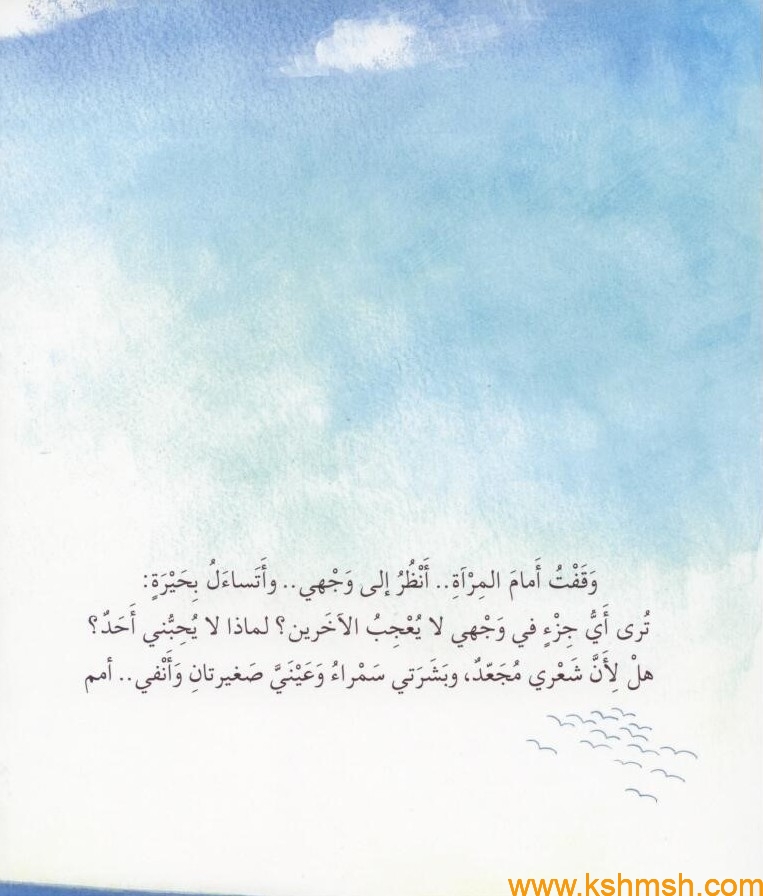 وَقَفْتُ أَمامَ المِرْآةِ.. أَنْظُرُ إلى وَجْهي.. وأَتَساءَلُ بِحَيْرَةٍ:
تُرى أَيُّ جِزْءٍ في وَجْهي لا يُعْجِبُ الآخَرين؟ لماذا لا يُحِبُّني أَحَدٌ؟
هلْ لِأَنَّ شَعْري مُجَعّدٌ، وبَشَرَتي سَمْراءُ وَعَيْنَيَّ صَغيرتانِ وَأَنْفي.. أمم
www.kshmsh.com